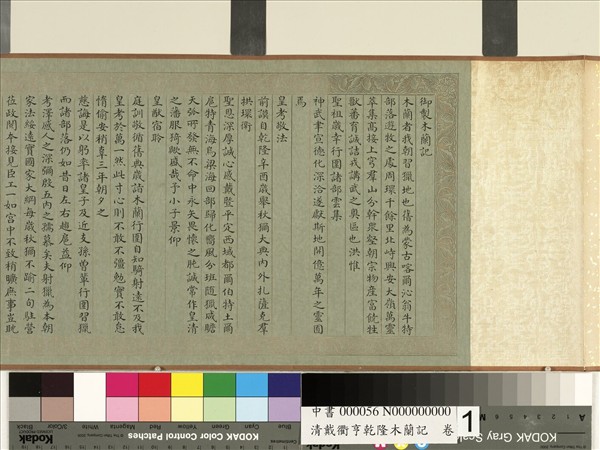 御製木蘭記
木蘭者我朝習獵地也舊為蒙古喀爾沁翁牛特
部落遊牧之處周環千餘里北峙興安大嶺萬靈
萃集高接上穹群山分幹衆壑朝宗物產富饒牲
獸蕃育誠詰我講武之奧區也洪惟
聖祖歲幸行圍諸部雲集
神武聿宣德化深洽遂獻斯地開億萬年之靈囿
焉
皇考敬法
前謨自乾隆辛酉歲舉秋獮大典內外扎薩克群
拱環衛
聖恩深厚誠心感戴暨平定西域都爾伯特土爾
扈特青海烏梁海回部歸化嚮風分班隨獵咸瞻
天弧所發無不命中永矢畏懷之忱誠常作皇清
之藩服猗歟盛哉予小子景仰
皇猷宿聆
庭訓敬循舊典歲詣木蘭行圍自知騎射遠不及我
皇考於萬一然此寸心則不敢不彊勉實不敢怠
惰偷安稍辜三年朝夕之
慈誨是以躬率諸皇子及近支孫曾輩行圍習獵
而諸部落仍如昔日左右趨扈益仰
考澤感人之深彌殷五內之孺慕矣夫射獵為本朝
家法綏遠實國家大綱每歲秋獮不踰二旬駐營
莅政閱本接見臣工一如宮中不致稍曠庶事豈耽
中書 000056 N000000000
清戴衢亨乾隆木蘭記 卷
1
Black 3/Color White Magenta Red Yellow Green Cyan Blue
Kodak KODAK Color Control Patches
KODAK Gray Scale
A M